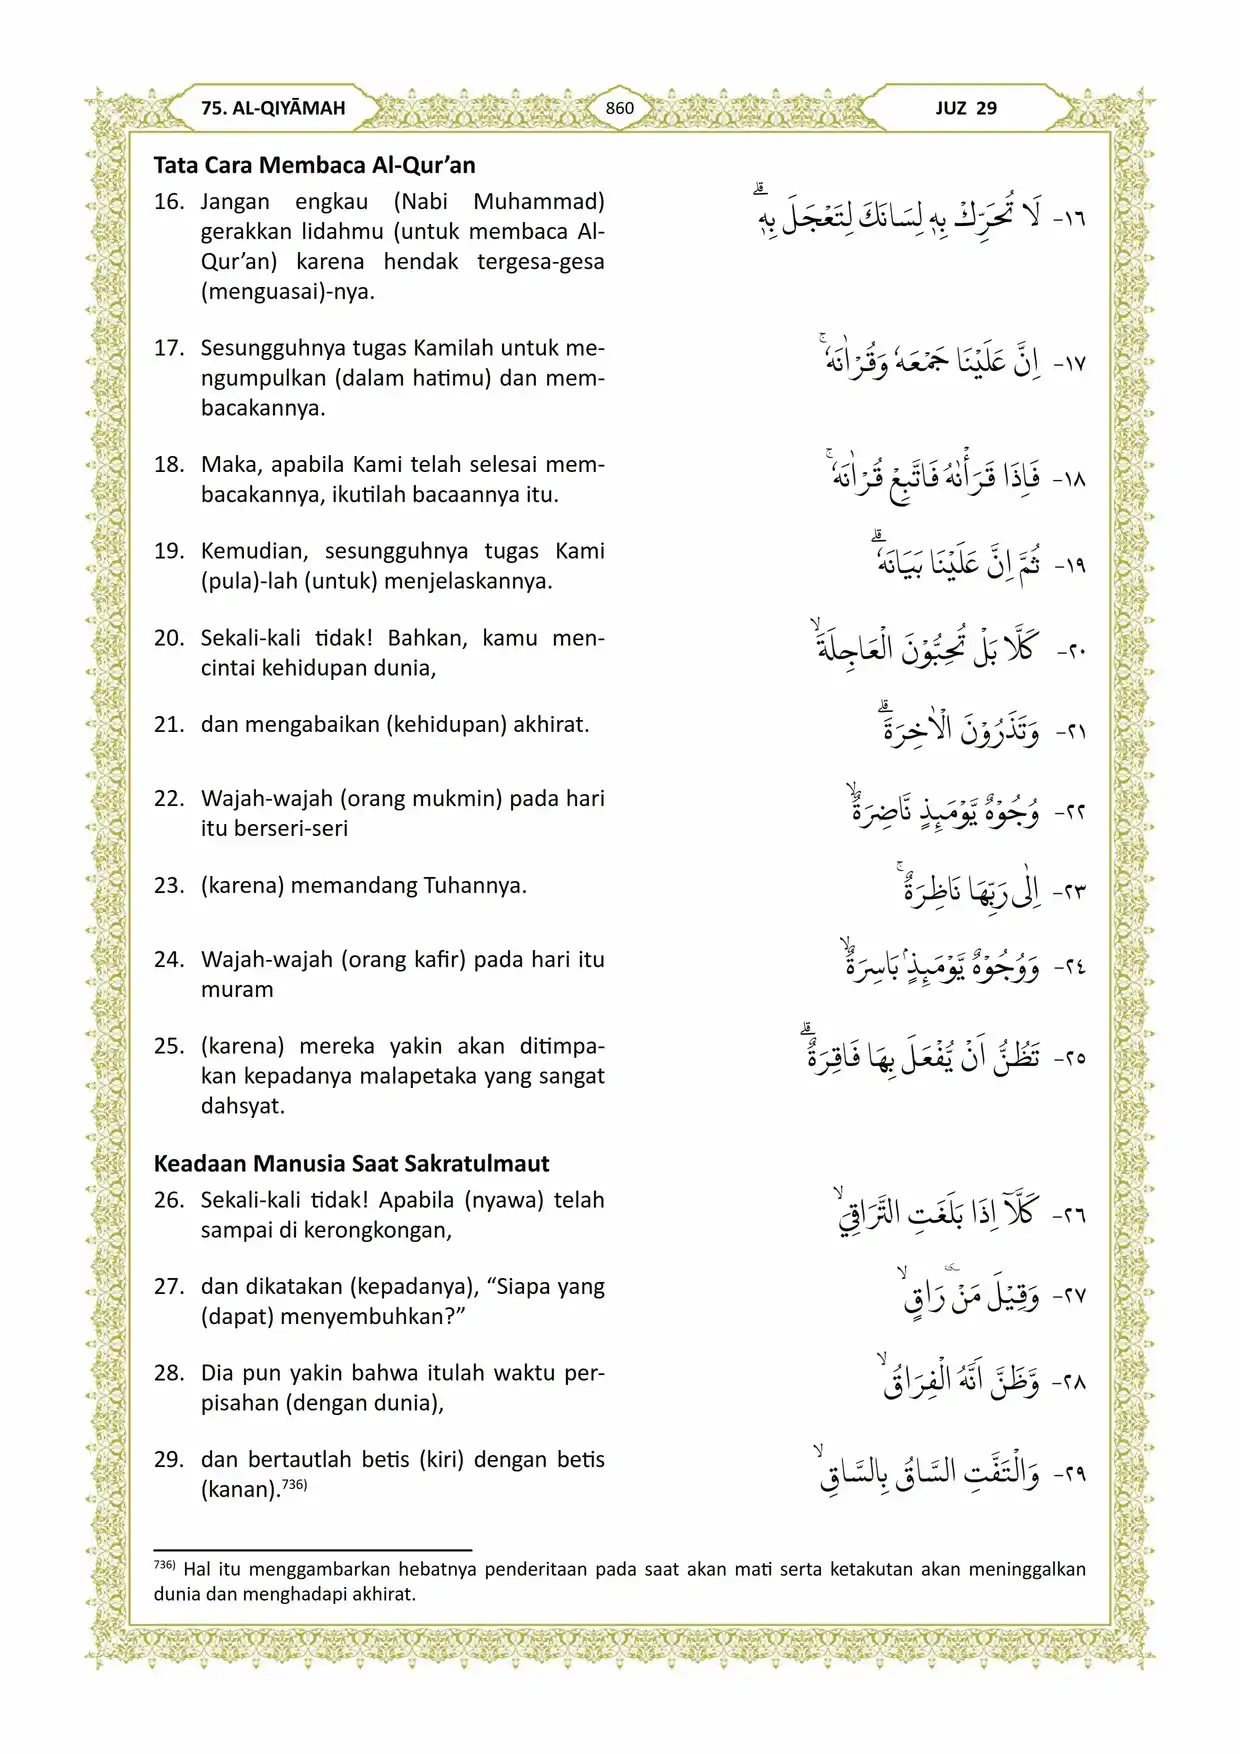 75. AL-QIYĀMAH
860
JUZ 29
Tata Cara Membaca Al-Qur’an
16. Jangan engkau (Nabi Muhammad)
gerakkan lidahmu (untuk membaca Al-
Qur’an) karena hendak tergesa-gesa
(menguasai)-nya.
١٦- لَا تُحَرِّكْ بِهٖ لِسَانَكَ لِتَعْجَلَ بِهٖۗ
17. Sesungguhnya tugas Kamilah untuk me-
ngumpulkan (dalam hatimu) dan mem-
bacakannya.
١٧- اِنَّ عَلَيْنَا جَمْعَهٗ وَقُرْاٰنَهٗۚ
18. Maka, apabila Kami telah selesai mem-
bacakannya, ikutilah bacaannya itu.
١٨- فَاِذَا قَرَأْنٰهُ فَاتَّبِعْ قُرْاٰنَهٗۚ
19. Kemudian, sesungguhnya tugas Kami
(pula)-lah (untuk) menjelaskannya.
١٩- ثُمَّ اِنَّ عَلَيْنَا بَيَانَهٗۗ
20. Sekali-kali tidak! Bahkan, kamu men-
cintai kehidupan dunia,
٢٠- كَلَّا بَلْ تُحِبُّوْنَ الْعَاجِلَةَۙ
21. dan mengabaikan (kehidupan) akhirat.
٢١- وَتَذَرُوْنَ الْاٰخِرَةَۗ
22. Wajah-wajah (orang mukmin) pada hari
itu berseri-seri
٢٢- وُجُوْهٌ يَّوْمَىِٕذٍ نَّاضِرَةٌۙ
23. (karena) memandang Tuhannya.
٢٣- اِلٰى رَبِّهَا نَاظِرَةٌۚ
24. Wajah-wajah (orang kafir) pada hari itu
muram
٢٤- وَوُجُوْهٌ يَّوْمَىِٕذٍۢ بَاسِرَةٌۙ
25. (karena) mereka yakin akan ditimpa-
kan kepadanya malapetaka yang sangat
dahsyat.
٢٥- تَظُنُّ اَنْ يُّفْعَلَ بِهَا فَاقِرَةٌۗ
Keadaan Manusia Saat Sakratulmaut
26. Sekali-kali tidak! Apabila (nyawa) telah
sampai di kerongkongan,
٢٦- كَلَّآ اِذَا بَلَغَتِ التَّرَاقِيَۙ
27. dan dikatakan (kepadanya), “Siapa yang
(dapat) menyembuhkan?”
٢٧- وَقِيْلَ مَنْ ۜرَاقٍۙ
28. Dia pun yakin bahwa itulah waktu per-
pisahan (dengan dunia),
٢٨- وَّظَنَّ اَنَّهُ الْفِرَاقُۙ
29. dan bertautlah betis (kiri) dengan betis
(kanan).736)
٢٩- وَالْتَفَّتِ السَّاقُ بِالسَّاقِۙ
736) Hal itu menggambarkan hebatnya penderitaan pada saat akan mati serta ketakutan akan meninggalkan
dunia dan menghadapi akhirat.